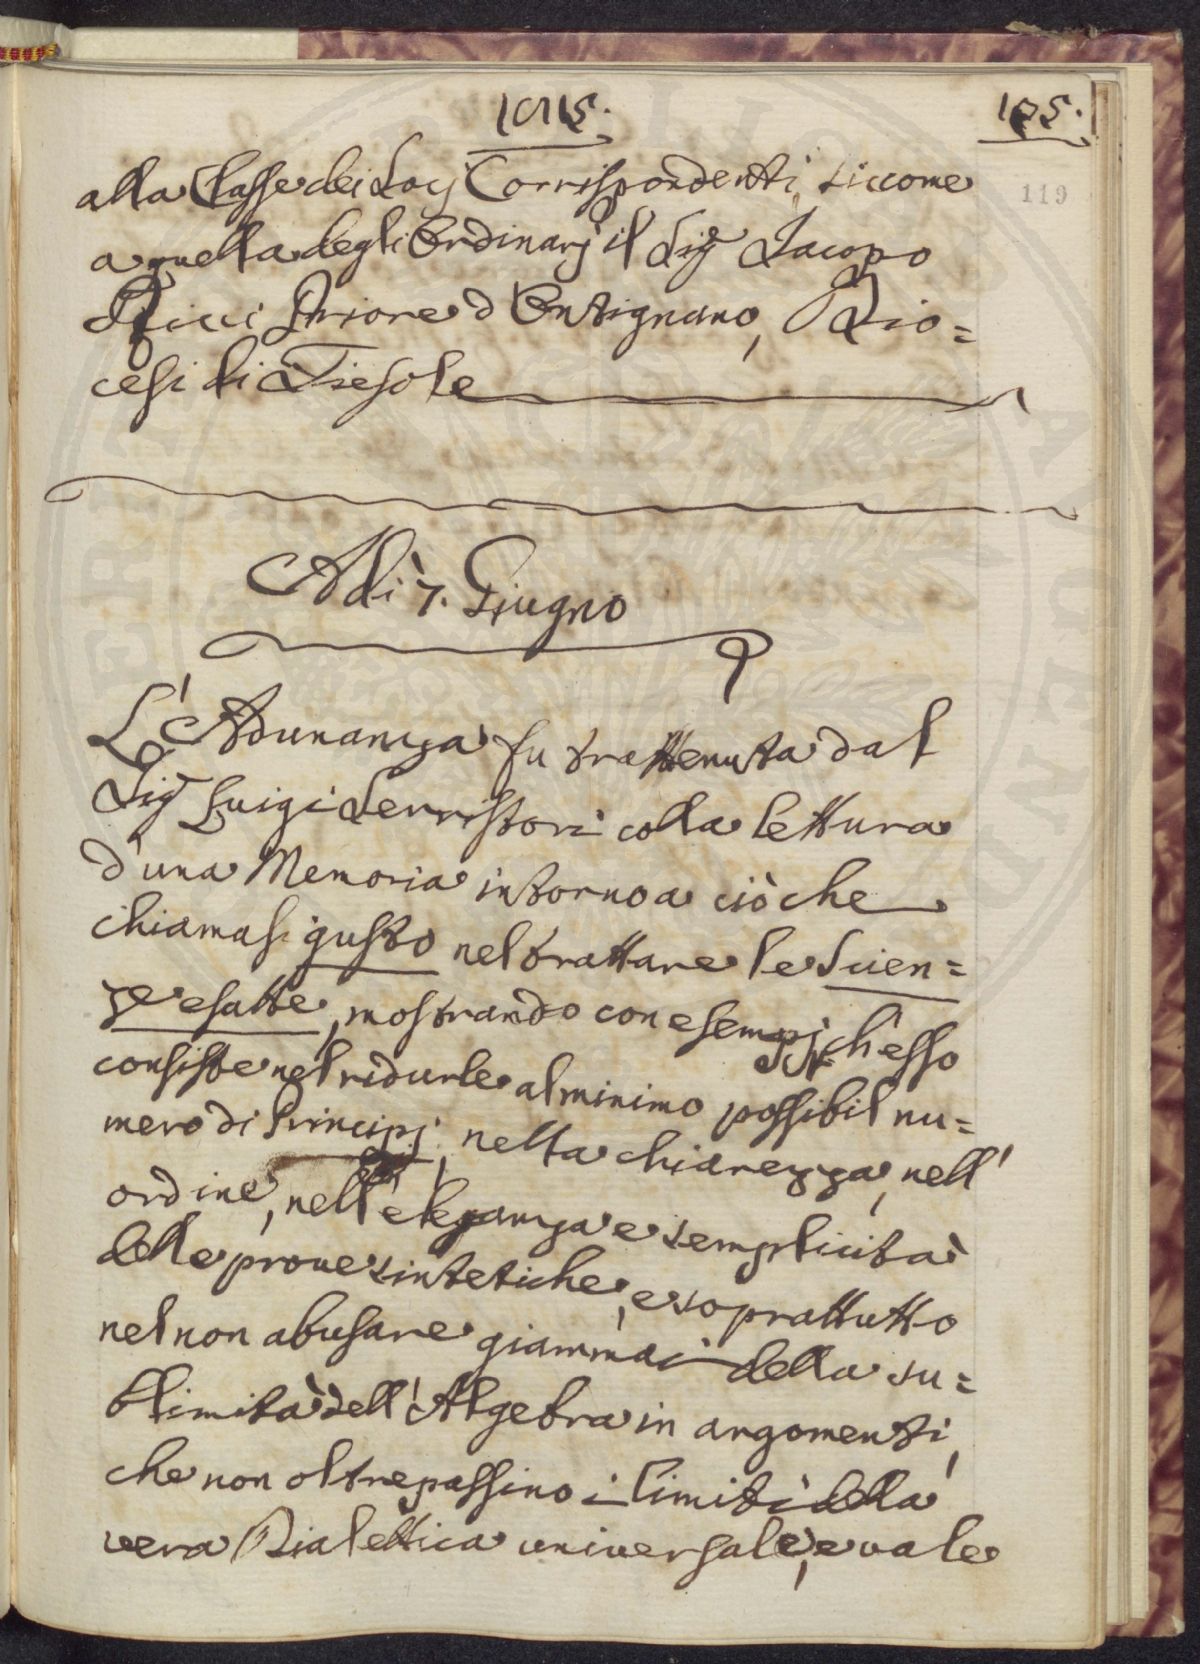 1815. 105.
119
alla Classe dei Socj Corrispondenti, siccome
a quella degli Ordinarj il Sig.r Jacopo
Ricci Priore d'Antignano, Dio=
cesi di Fiesole
Adì 7. Giugno
L'Adunanza fu trattenuta dal
Sig.r Luigi Serristori colla lettura
d'una Memoria intorno a ciò che
chiamasi gusto nel trattare le Scien=
ze esatte, mostrando con esempj, ch'esso
consiste nel ridurle al minimo possibil nu=
mero di Principj, nella chiarezza, nell'
ordine, nell'eleganza e semplicità
delle prove sintetiche, e soprattutto
nel non abusare giammai della su=
blimità dell'Algebra in argomenti,
che non oltrepassino i limiti della
vera Dialettica universale, e vale